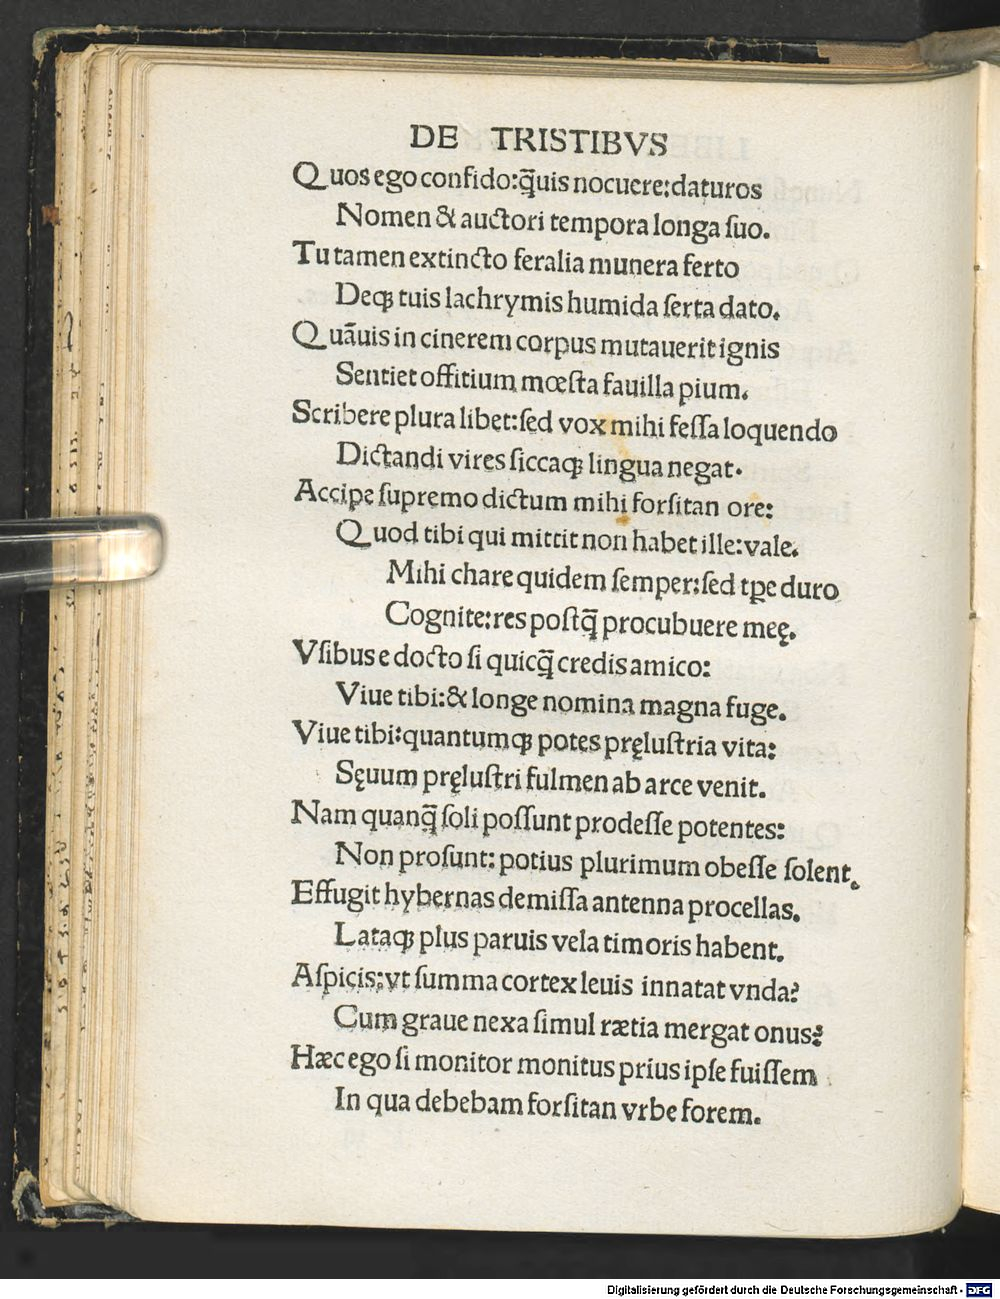 DE TRISTIBVS
Quos ego confido:q̃uis nocuere:daturos
Nomen & auctori tempora longa ſuo.
Tu tamen extincto feralia munera ferto
Deqꝫ tuis lachrymis humida ſerta dato.
Quãuis in cinerem corpus mutauerit ignis
Sentiet offitium mœſta fauilla pium.
Scribere plura libet:ſed vox mihi feſſa loquendo
Dictandi vires ſiccaqꝫ lingua negat.
Accipe ſupremo dictum mihi forſitan ore:
Quod tibi qui mittit non habet ille:vale.
Mihi chare quidem ſemper:ſed tꝑe duro
Cognite:res poſtq̃ procubuere meę.
Vſibus e docto ſi quicq̃ credis amico:
Viue tibi:& longe nomina magna fuge.
Viue tibi:quantumqꝫ potes pręluſtria vita:
Sęuum pręluſtri fulmen ab arce venit.
Nam quanq̃ ſoli poſſunt prodeſſe potentes:
Non proſunt: potius plurimum obeſſe ſolent.
Effugit hybernas demiſſa antenna procellas.
Lataqꝫ plus paruis vela timoris habent.
Aſpicis:vt ſumma cortex leuis innatat vnda?
Cum graue nexa ſimul rætia mergat onus?
Hæc ego ſi monitor monitus prius ipſe fuiſſem
In qua debebam forſitan vrbe forem.
Digitalisierung gefördert durch die Deutsche Forschungsgemeinschaft - DFG